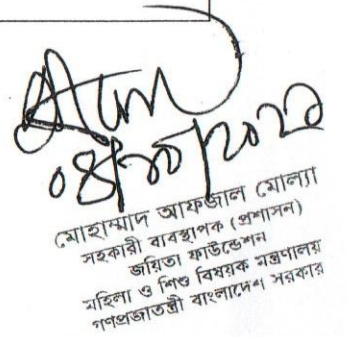 মোহাম্মাদ আফজাল মোল্যা
সহকারী ব্যবস্থাপক (প্রশাসন)
জয়িতা ফাউন্ডেশন
মহিলা ও শিশু বিষয়ক মন্ত্রণালয়
গণপ্রজাতন্ত্রী বাংলাদেশ সরকার